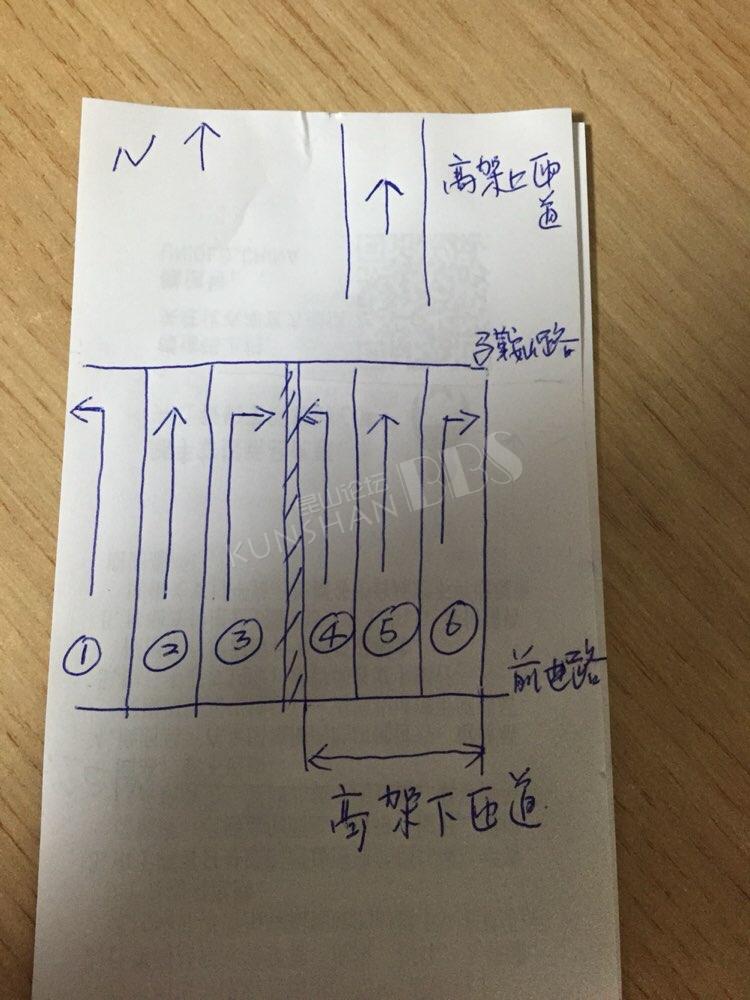 N
高架上匝
道
马鞍山路
昆山论坛
KUNSHAN BBS
① ② ③ ④ ⑤ ⑥
前进路
高架下匝道